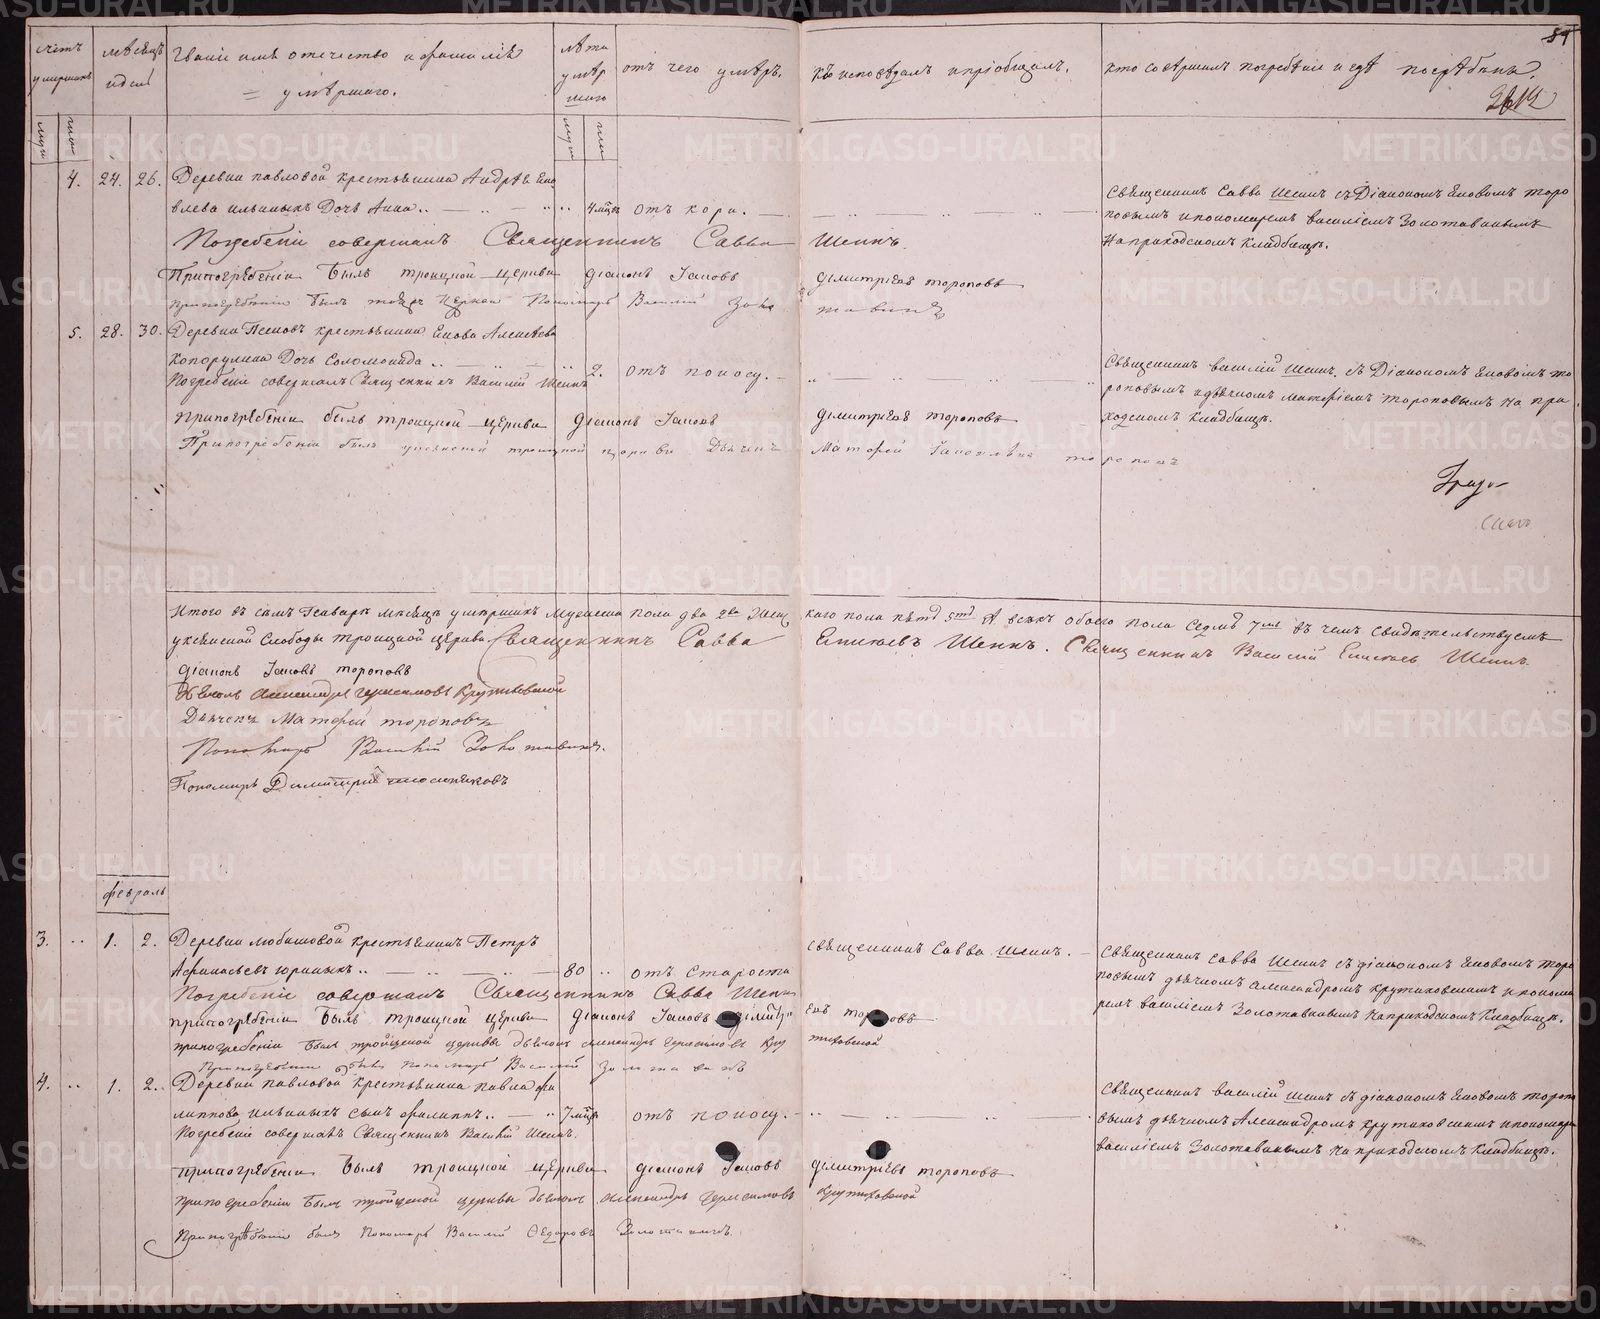 счетъ умершихъ
мѣсяцъ и дни
Званіе имя отечество и фамилія умѣршаго.
лѣта умѣршаго
отъ чего умѣръ.
кто исповѣдалъ и пріобщалъ.
кто совершалъ погребѣніе и гдѣ погрѣбѣны.
4. 24. 26. Деревни павловой крестьянина Андрѣя Яко
влева ильиныхъ Дочь Анна 4 мцв отъ кори.
Священникъ Савва Шешинъ съ Діакономъ Яковомъ Торо
повымъ и пономаремъ василіемъ Золотавинымъ
На приходскомъ кладбищѣ.
Погребеніе совершалъ Священникъ Савва Шешинъ.
При погребѣніи былъ троицкой церкви діаконъ Іаковъ Димитріевъ тороповъ
При погребеніи былъ тояже церкви Пономарь Василій Золотавинъ
5. 28. 30. Деревни крестьянина Якова Алексѣева
Дочь Соломонида 2. отъ поносу.
Священникъ василій Шешинъ съ Діакономъ Яковомъ то
роповымъ и дьячкомъ Матфіемъ тороповымъ на при
ходскомъ кладбищѣ.
Погребеніе совершалъ Священникъ Василій Шешинъ
При погребѣніи былъ троицкой церкви діаконъ Іаковъ Димитріевъ тороповъ
При погребеніи былъ троицкой церкви Дьячекъ Матфей Іаковлевъ тороповъ
Итого въ семъ Генварѣ мѣсяцѣ умершихъ Мужеска пола два 2ва Женскаго пола пять 5ть А всѣхъ обоего пола Седмъ 7мь въ чемъ свидѣтельствуемъ
Слободы троицкой церкви Священникъ Савва Шешинъ. Священникъ Василій Шешинъ.
Діаконъ Іаковъ тороповъ
Дьячекъ Александръ Герасимовъ Крутиховской
Дьячекъ Матфей тороповъ
Пономарь Василій Золотавинъ.
Пономарь Димитрій
февраль
3. 1. 2. Деревни любишовой крестьянинъ Петръ
Афанасьевъ юриныхъ 80 отъ Староста
священникъ Савва Шешинъ.
Священникъ савва Шешинъ съ діакономъ Яковомъ торо
повымъ дьячкомъ Александромъ крутиховскимъ и понома
ремъ василіемъ Золотавинымъ На приходскомъ Кладбищѣ.
Погребеніе совершалъ Священникъ Савва Шешинъ
при погребѣніи былъ троицкой церкви діаконъ Іаковъ Димитріевъ тороповъ
при погребеніи былъ тройцкой церквы дьячокъ Александръ Герасимовъ Крутиховской
При погребеніи былъ Пономарь Василій Золотавинъ
4. 1. 2. Деревни павловой крестьянина павла фи
липпова ильиныхъ сынъ филиппъ 7 мцв отъ поносу.
Священникъ василій Шешинъ съ діакономъ Яковомъ торопо
вымъ дьячкомъ Александромъ крутиховскимъ и пономаремъ
василіемъ Золотавинымъ на приходскомъ кладбищѣ.
Погребеніе совершалъ Священникъ Василій Шешинъ.
при погребѣніи былъ троицкой церкви діаконъ Іаковъ Димитріевъ тороповъ
при погребеніи былъ тройцкой церквы дьячокъ Александръ Герасимовъ Крутиховской
При погрѣбеніи былъ Пономарь Василій Ѳедоровъ Золотавинъ.
METRIKI.GASO-URAL.RU